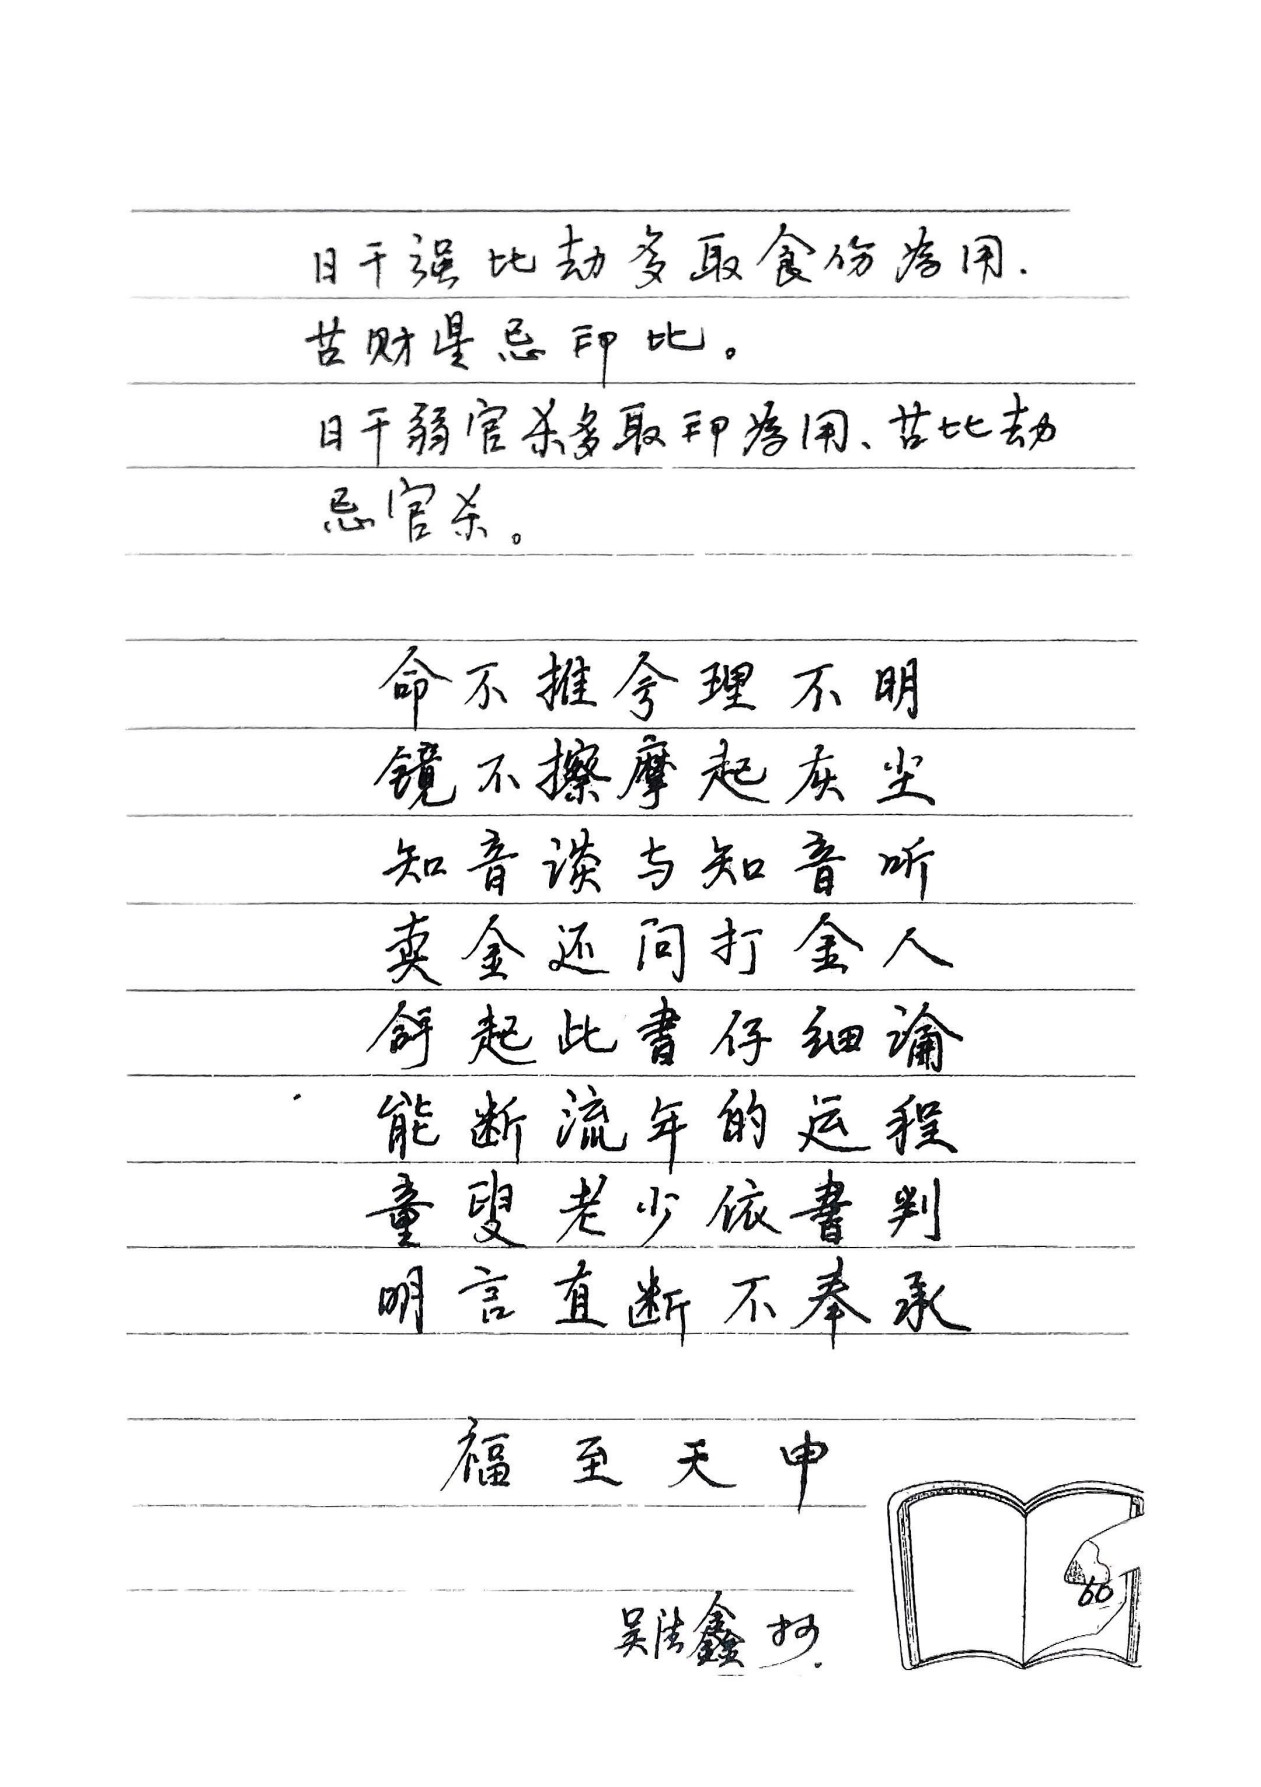 日干强比劫多取食伤为用.
苦财星忌印比。
日干弱官杀多取印为用、苦比劫
忌官杀。
命不推兮理不明
镜不擦摩起灰尘
知音谈与知音听
卖金还问打金人
起此書仔细論
能断流年的运程
童叟老少依書判
明言直断不奉承
福至天申
吴法鑫
60